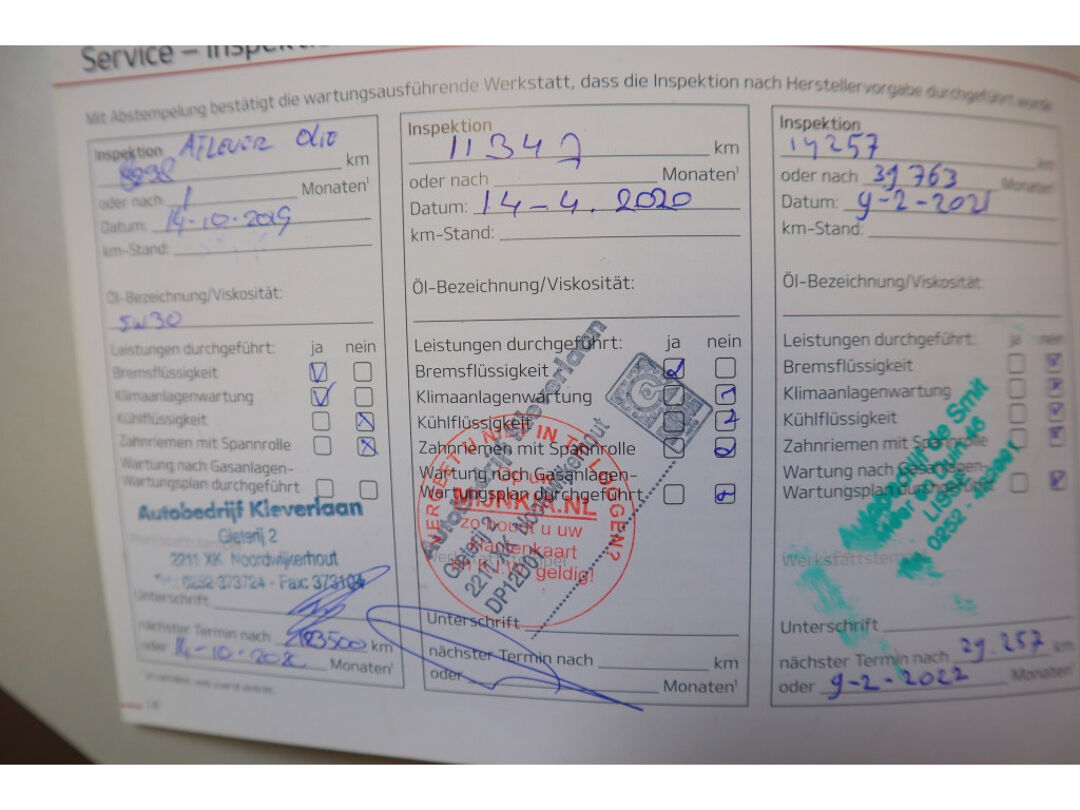 Service – Inspekti
Mit Abstempelung bestätigt die wartungsausführende Werkstatt, dass die Inspektion nach Herstellervorgabe durchgeführt wurde
Inspektion AFLEVER Olie
8298 km
oder nach 1 Monaten¹
Datum: 14-10-2019
km-Stand:
Öl-Bezeichnung/Viskosität:
5W30
Leistungen durchgeführt: ja nein
Bremsflüssigkeit
Klimaanlagenwartung
Kühlflüssigkeit
Zahnriemen mit Spannrolle
Wartung nach Gasanlagen-
Wartungsplan durchgeführt
Autobedrijf Kleverlaan
Gieterij 2
2211 XK Noordwijkerhout
Tel.: 0252-373724 - Fax: 373104
Unterschrift
nächster Termin nach 23500 km
oder 14-10-2020 Monaten¹
Inspektion
11347 km
oder nach Monaten¹
Datum: 14-4.2020
km-Stand:
Öl-Bezeichnung/Viskosität:
Leistungen durchgeführt: ja nein
Bremsflüssigkeit
Klimaanlagenwartung
Kühlflüssigkeit
Zahnriemen mit Spannrolle
Wartung nach Gasanlagen-
Wartungsplan durchgeführt
Autobedrijf Kleverlaan
Gieterij 2
2211 XK Noordwijkerhout
DP12D01
VERGEET U NIET IN TE LOGGEN?
Op uw
MIJNKLANT.NL
zo houdt u uw
klantenkaart
geldig!
Unterschrift
nächster Termin nach km
oder Monaten¹
Inspektion
14257 km
oder nach 39763 Monaten
Datum: 9-2-2021
km-Stand:
Öl-Bezeichnung/Viskosität:
Leistungen durchgeführt: ja nein
Bremsflüssigkeit
Klimaanlagenwartung
Kühlflüssigkeit
Zahnriemen mit Spannrolle
Wartung nach Gasanlagen-
Wartungsplan durchgeführt
Autobedrijf de Smit
LISSE
0252 -
Werkstattstempel
Unterschrift
nächster Termin nach 29.257 km
oder 9-2-2022 Monaten